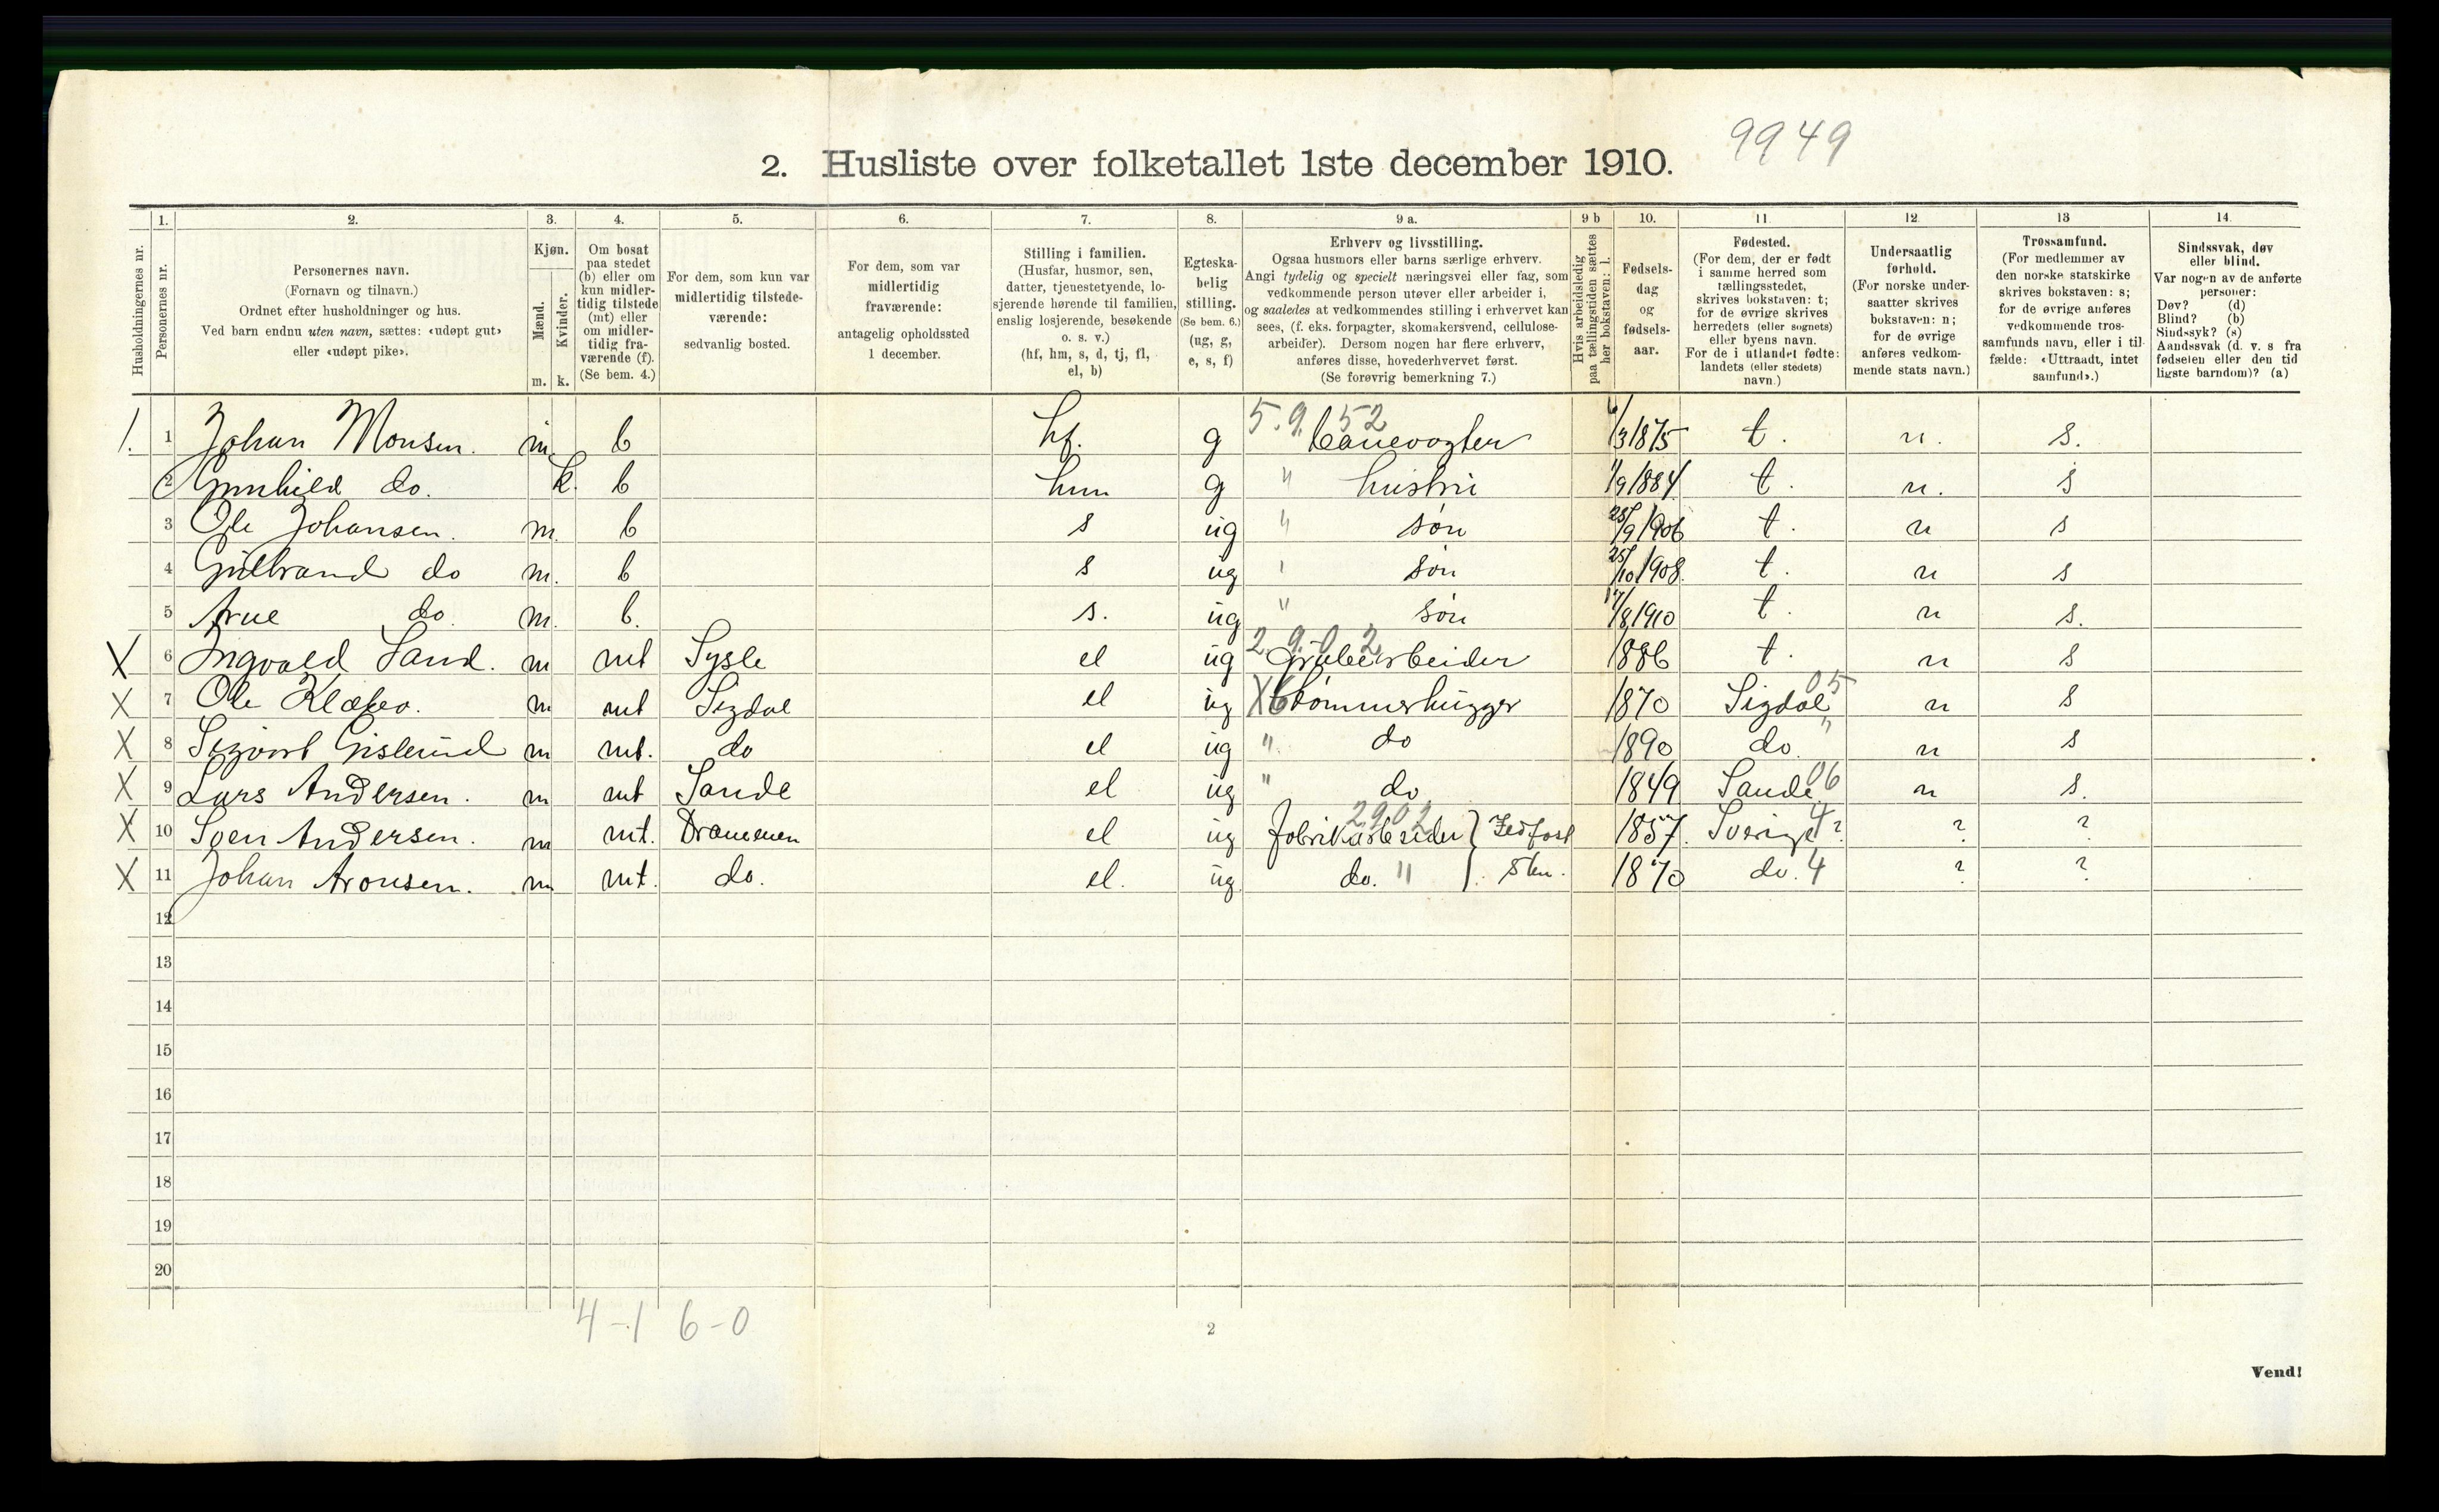 9949
2. Husliste over folketallet 1ste december 1910.
Husholdningernes nr.
1. Personernes nr.
2. Personernes navn.
(Fornavn og tilnavn.)
Ordnet efter husholdninger og hus.
Ved barn endnu uten navn, sættes: «udøpt gut»
eller «udøpt pike».
3. Kjøn.
Mænd. m.
Kvinder. k.
4. Om bosat
paa stedet
(b) eller om
kun midler-
tidig tilstede
(mt) eller
om midler-
tidig fra-
værende (f).
(Se bem. 4.)
5. For dem, som kun var
midlertidig tilstede-
værende:
sedvanlig bosted.
6. For dem, som var
midlertidig
fraværende:
antagelig opholdssted
1 december.
7. Stilling i familien.
(Husfar, husmor, søn,
datter, tjenestetyende, lo-
sjerende hørende til familien,
enslig losjerende, besøkende
o. s. v.)
(hf, hm, s, d, tj, fl,
el, b)
8. Egteska-
belig
stilling.
(Se bem. 6.)
(ug, g,
e, s, f)
9 a. Erhverv og livsstilling.
Ogsaa husmors eller barns særlige erhverv.
Angi tydelig og specielt næringsvei eller fag, som
vedkommende person utøver eller arbeider i,
og saaledes at vedkommendes stilling i erhvervet kan
sees, (f. eks. forpagter, skomakersvend, cellulose-
arbeider). Dersom nogen har flere erhverv,
anføres disse, hovederhvervet først.
(Se forøvrig bemerkning 7.)
9 b Hvis arbeidsledig
paa tællingstiden sættes
her bokstaven: l.
10. Fødsels-
dag
og
fødsels-
aar.
11. Fødested.
(For dem, der er født
i samme herred som
tællingsstedet,
skrives bokstaven: t;
for de øvrige skrives
herredets (eller sognets)
eller byens navn.
For de i utlandet fødte:
landets (eller stedets)
navn.)
12. Undersaatlig
forhold.
(For norske under-
saatter skrives
bokstaven: n;
for de øvrige
anføres vedkom-
mende stats navn.)
13 Trossamfund.
(For medlemmer av
den norske statskirke
skrives bokstaven: s;
for de øvrige anføres
vedkommende tros-
samfunds navn, eller i til-
fælde: «Uttraadt, intet
samfund».)
14. Sindssvak, døv
eller blind.
Var nogen av de anførte
personer:
Døv? (d)
Blind? (b)
Sindssyk? (s)
Aandssvak (d. v. s fra
fødselen eller den tid
ligste barndom)? (a)
5.9.52
1. 1 Johan Monsen. m. b hf. g Banevogter /3 1875 t. n. s.
2 Gunhild do. k. b hm g " hustru /9 1884 t. n. s
3 Ole Johansen. m. b s ug " søn 28/9 1906 t. n s
4 Gulbrand do m. b s ug " søn 25/10 1908. t. n s
5 Arne do. m. b. s. ug " søn 17/8 1910 t. n s.
2.9.0 2
X 6 Ingvald Sand. m mt Sysle el ug Grubearbeider 1886 t. n s
X 7 Ole Klæbo. m mt Sigdal el ug X6 tømmerhugger 1870 Sigdal 05 n s
X 8 m mt. do el ug " do 1890 do. " n s
X 9 Lars Andersen. m mt Sande el ug " do 1849 Sande 06 n s.
2902
X 10 Sven Andersen. m mt. Drammen el ug fabrikarbeider } 1857. Sverige 4? ? ?
X 11 Johan Aronsen. m mt. do. el. ug do. " }. 1870 do. 4 ? ?
12
13
14
15
16
17
18
19
20
4-1 6-0
2
Vend!